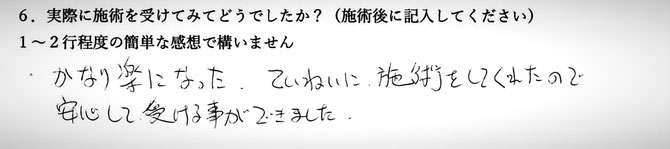 ６．実際に施術を受けてみてどうでしたか？（施術後に記入してください）
１～２行程度の簡単な感想で構いません
・かなり楽になった．ていねいに施術をしてくれたので
安心して受ける事ができました．